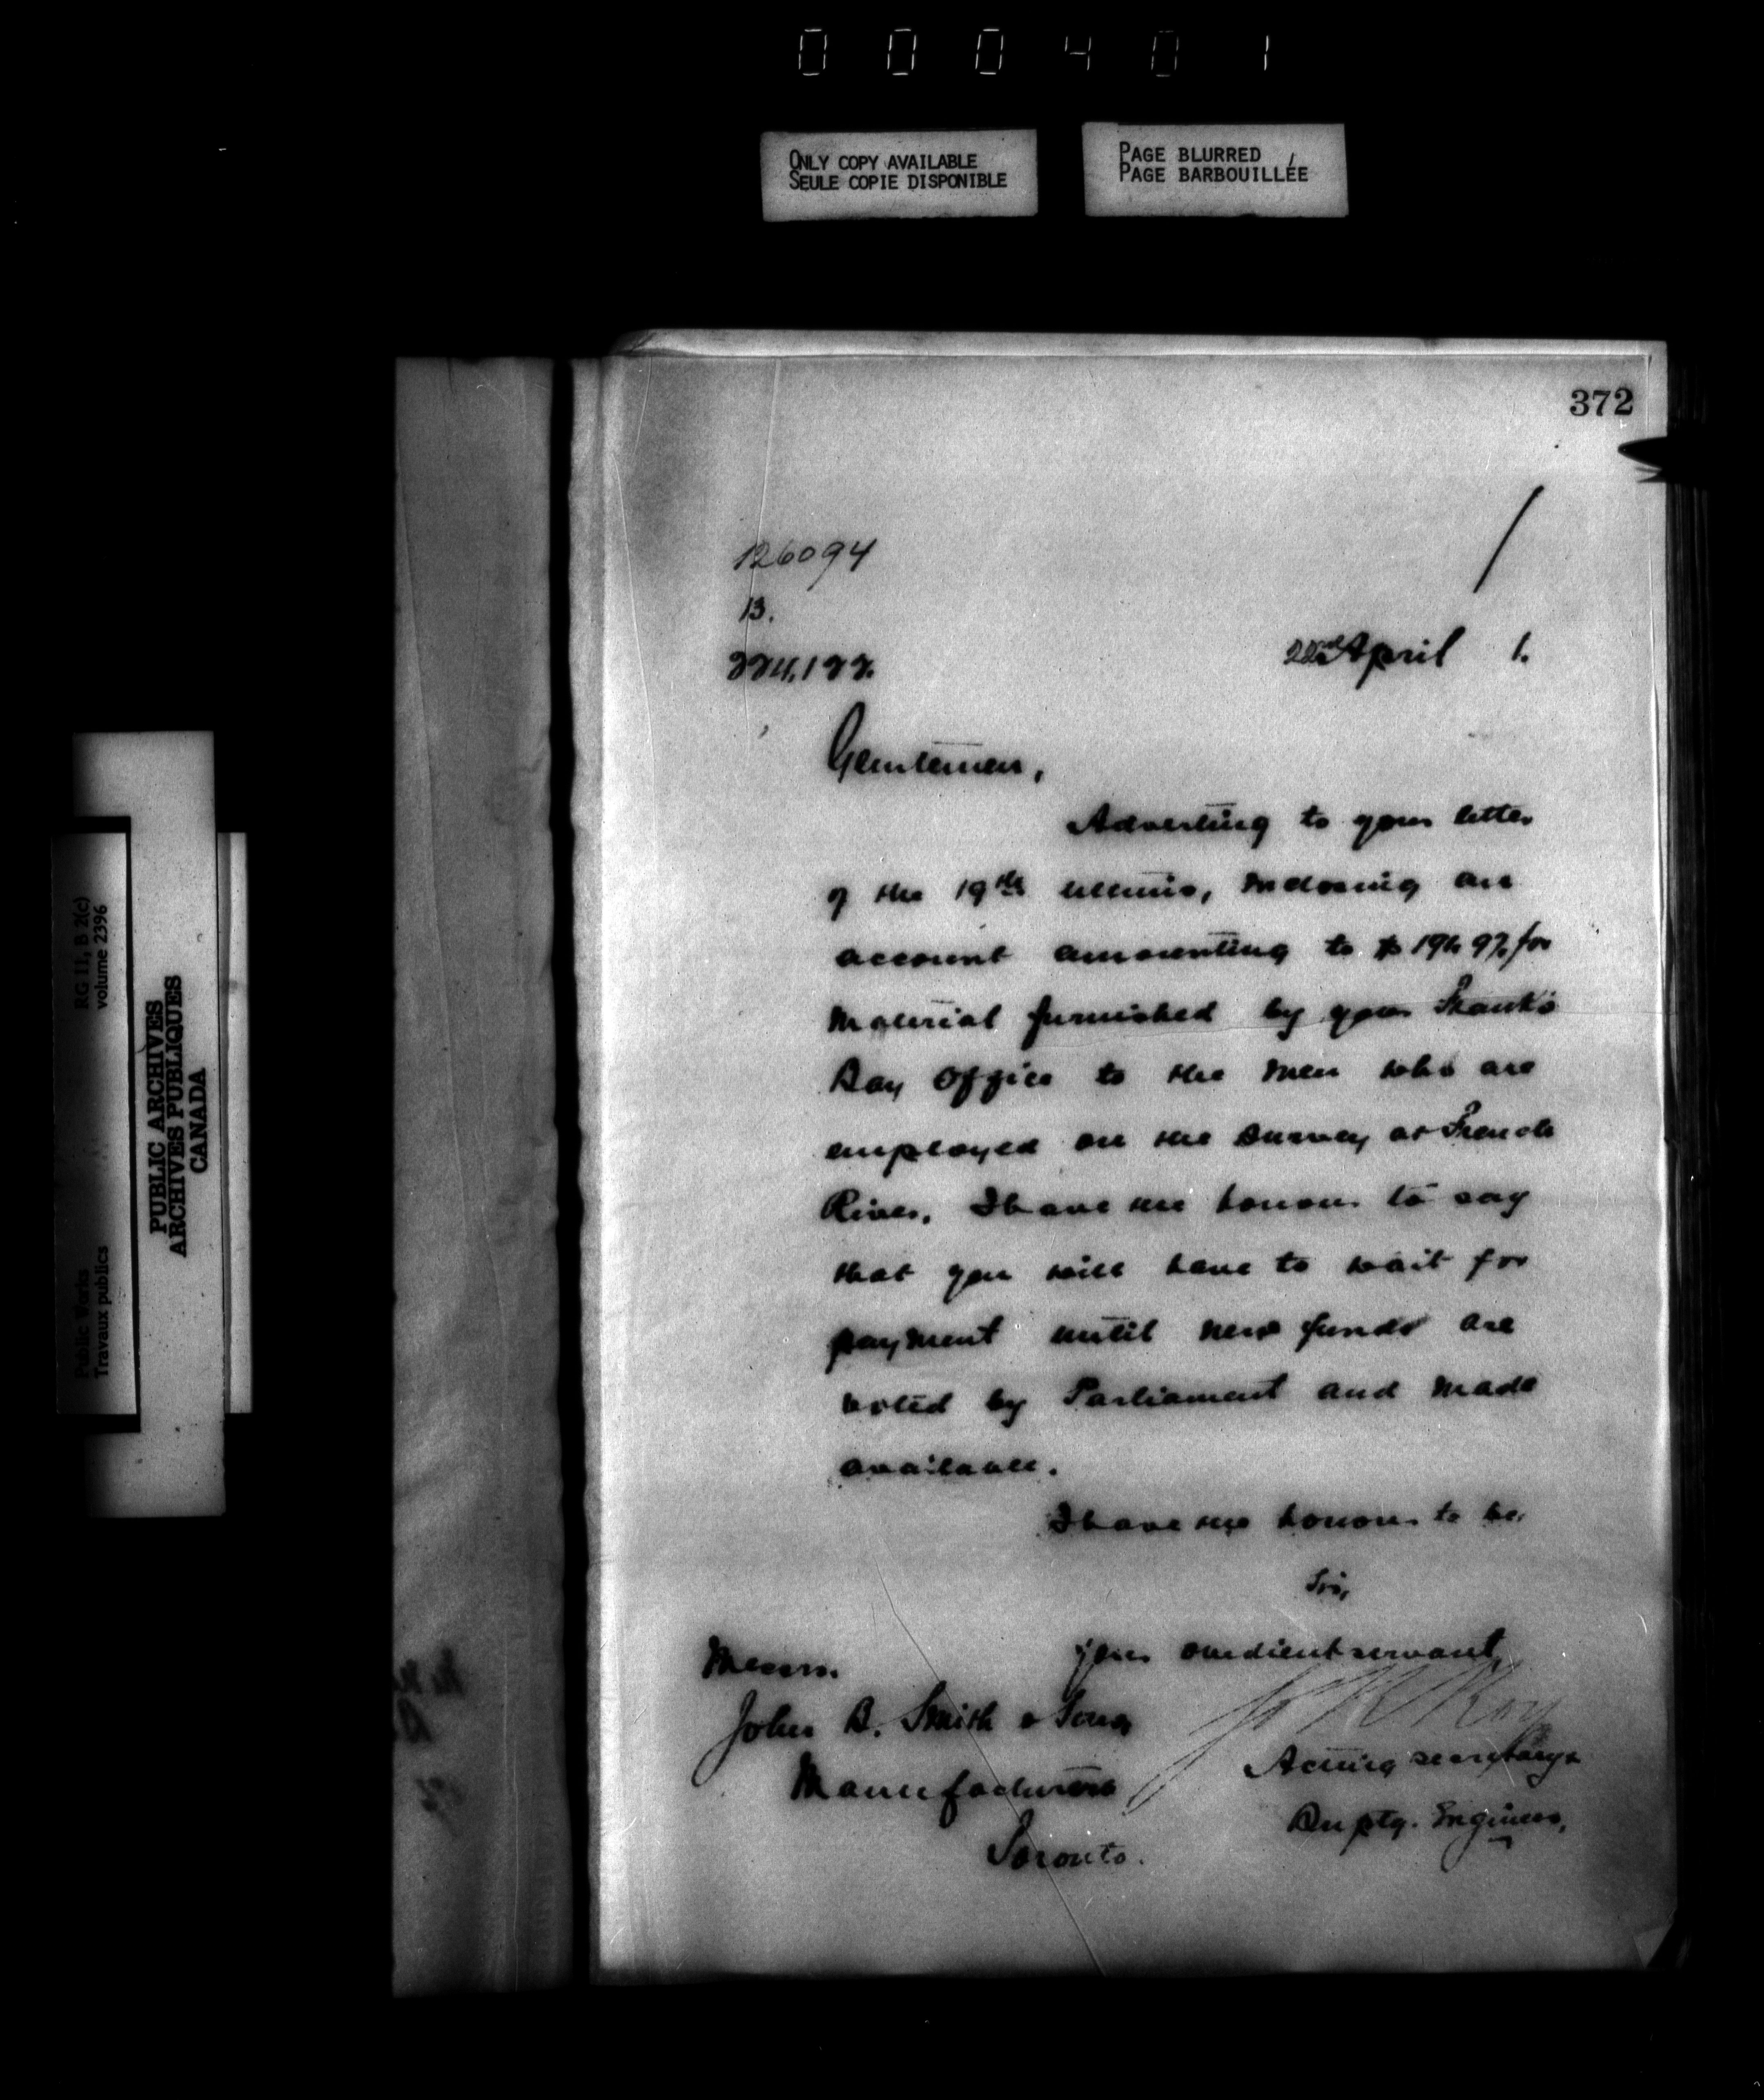 000401
ONLY COPY AVAILABLE
SEULE COPIE DISPONIBLE
PAGE BLURRED
PAGE BARBOUILLÉE
RG 11, B 2(c)
volume 2396
Public Works
Travaux publics
PUBLIC ARCHIVES
ARCHIVES PUBLIQUES
CANADA
372
126094
B.
224,122.
22nd April 1.
Gentlemen,
Adverting to your letter
of the 19th ultimo, inclosing an
account amounting to $ for
Material furnished by your Frank's
Bay Office to the men who are
employed on the survey at French
River, I have the honour to say
that you will have to wait for
payment until new funds are
voted by Parliament and made
available.
I have the honour to be,
Sir,
your obedient servant,
Messrs.
John B. Smith & Sons,
Manufacturers
Toronto.
Roy
Acting secretary
Engineer,